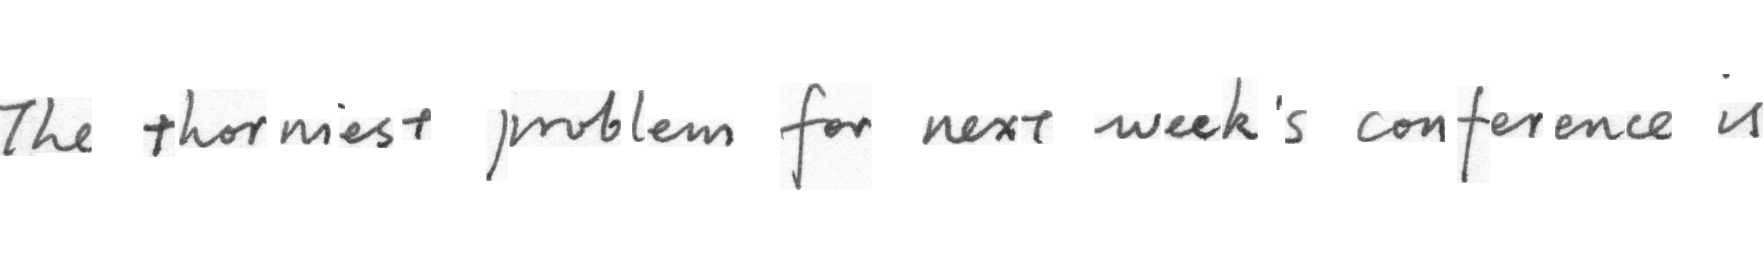 The thorniest problem for next week's conference is